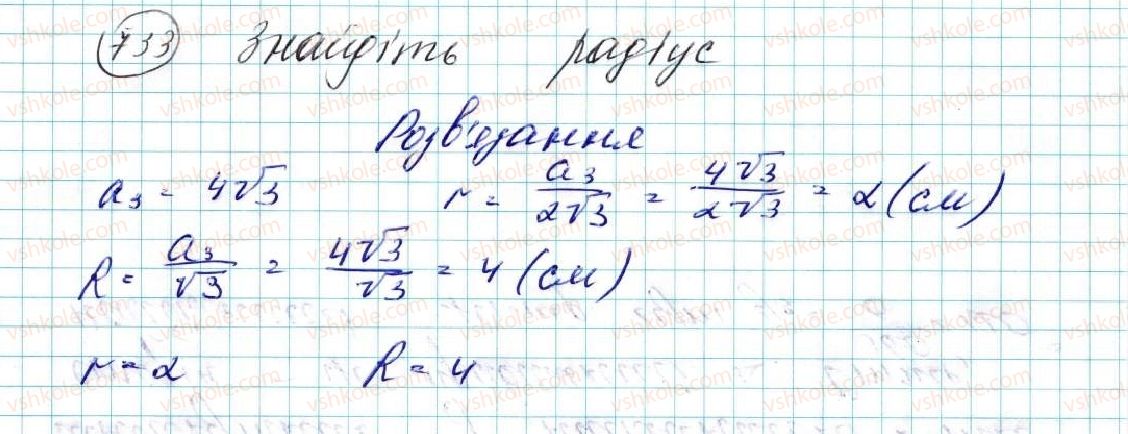 733 Знайдіть радіус
Розв'язання
a₃ = 4√3 r = a₃/2√3 = 4√3/2√3 = 2 (см)
R = a₃/√3 = 4√3/√3 = 4 (см)
r = 2 R = 4